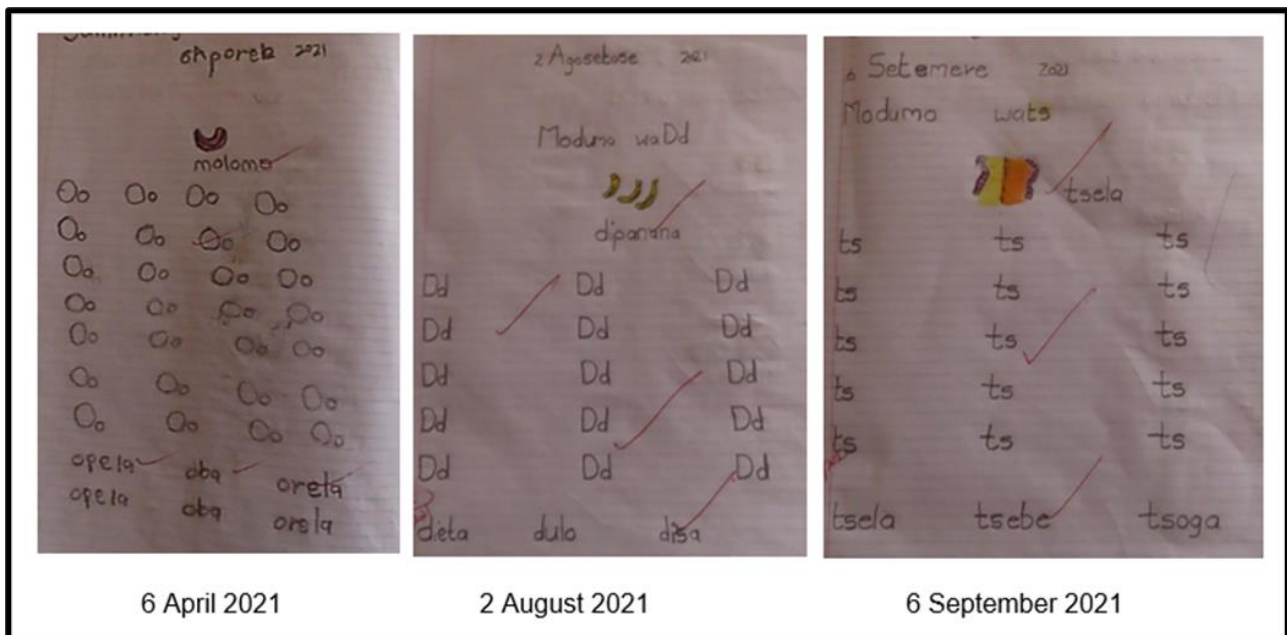 6 Aporele 2021
molomo
Oo Oo Oo Oo
Oo Oo Oo Oo
Oo Oo Oo Oo
Oo Oo Oo Oo
Oo Oo Oo Oo
Oo Oo Oo Oo
Oo Oo Oo Oo
opela oba orela
opela oba orela
6 April 2021
2 Agosetose 2021
Moduno wa Dd
dipanana
Dd Dd Dd
Dd Dd Dd
Dd Dd Dd
Dd Dd Dd
Dd Dd Dd
dieta dulo disa
2 August 2021
6 Setemere 2021
Modumo wa ts
tsela
ts ts ts
ts ts ts
ts ts ts
ts ts ts
ts ts ts
tsela tsebe tsoga
6 September 2021